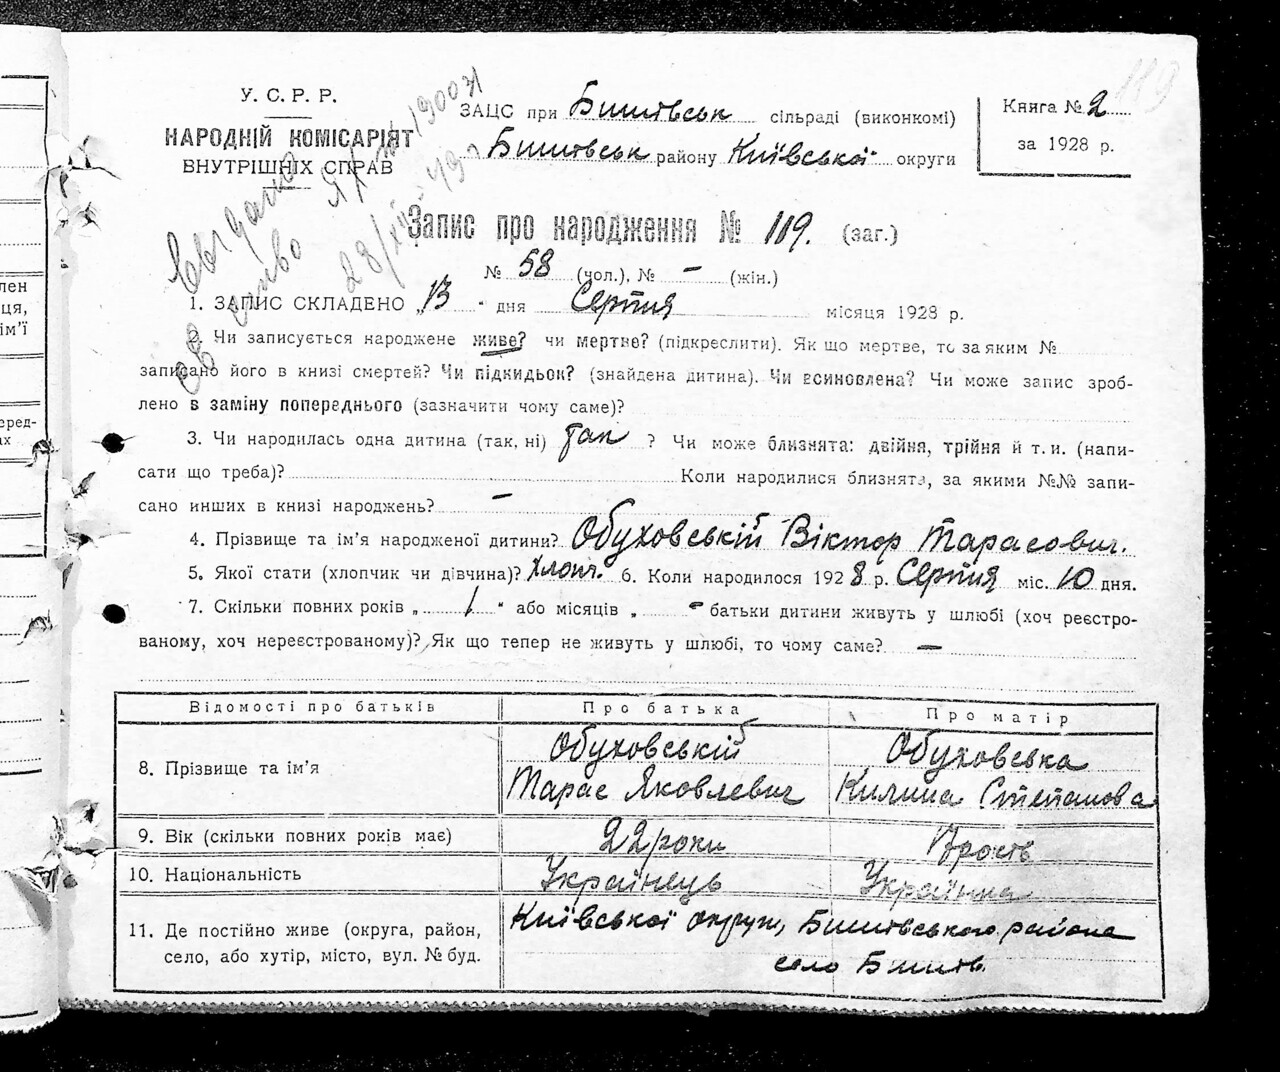 119
У. С. Р. Р.
НАРОДНІЙ КОМІСАРІЯТ
ВНУТРІШНІХ СПРАВ
ЗАЦС при Бишівськ сільраді (виконкомі)
Бишівськ району Київської округи
Книга № 2
за 1928 р.
Запис про народження № 119. (заг.)
№ 58 (чол.), № – (жін.)
1. ЗАПИС СКЛАДЕНО „13" дня Серпня місяця 1928 р.
2. Чи записується народжене живе? чи мертве? (підкреслити). Як що мертве, то за яким №
записано його в книзі смертей? Чи підкидьок? (знайдена дитина). Чи всиновлена? Чи може запис зроб-
лено в заміну попереднього (зазначити чому саме)?
3. Чи народилась одна дитина (так, ні) так ? Чи може близнята: двійня, трійня й т. и. (напи-
сати що треба)? Коли народилися близнята, за якими №№ запи-
сано инших в книзі народжень? –
4. Прізвище та ім'я народженої дитини? Обуховській Віктор Тарасович.
5. Якої стати (хлопчик чи дівчина)? хлопч. 6. Коли народилося 1928 р. Серпня міс. 10 дня.
7. Скільки повних років „ 1 " або місяців „ – батьки дитини живуть у шлюбі (хоч реєстро-
ваному, хоч нереєстрованому)? Як що тепер не живуть у шлюбі, то чому саме? —
Відомості про батьків Про батька Про матір
8. Прізвище та ім'я Обуховській Тарас Яковлевич Обуховська Килина Степанова
9. Вік (скільки повних років має) 22 роки
10. Національність Українець Українка
11. Де постійно живе (округа, район,
село, або хутір, місто, вул. № буд.
Київської округи, Бишівського района
село Бишів.